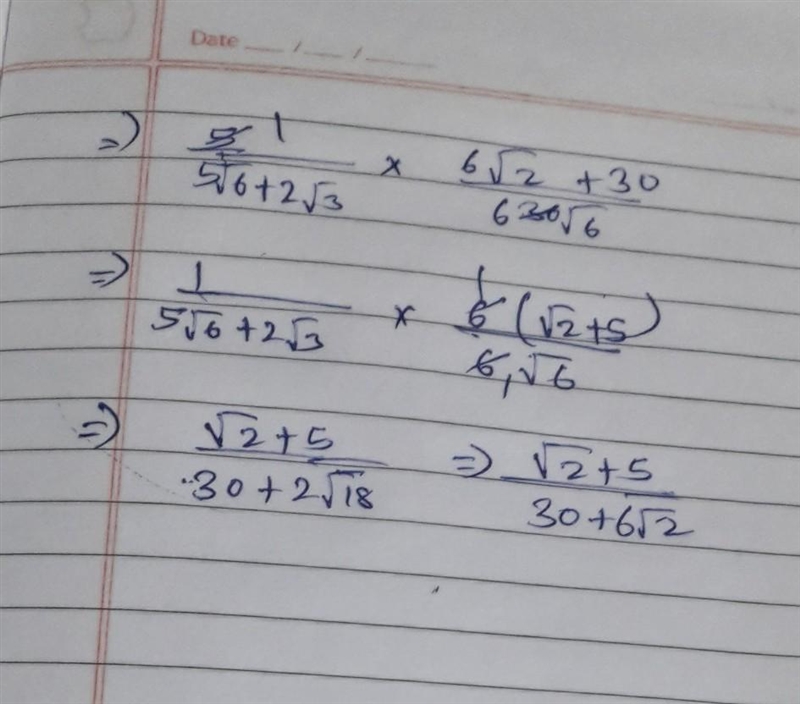 Date __ / __ / ____
⇒) 5̶ 1 / (5√6 + 2√3) × (6√2 + 30) / (6 3̶0̶ √6)
⇒) 1 / (5√6 + 2√3) × 6̶ 1 (√2 + 5) / (6̶ 1 √6)
⇒) (√2 + 5) / (30 + 2√18) ⇒) (√2 + 5) / (30 + 6√2)